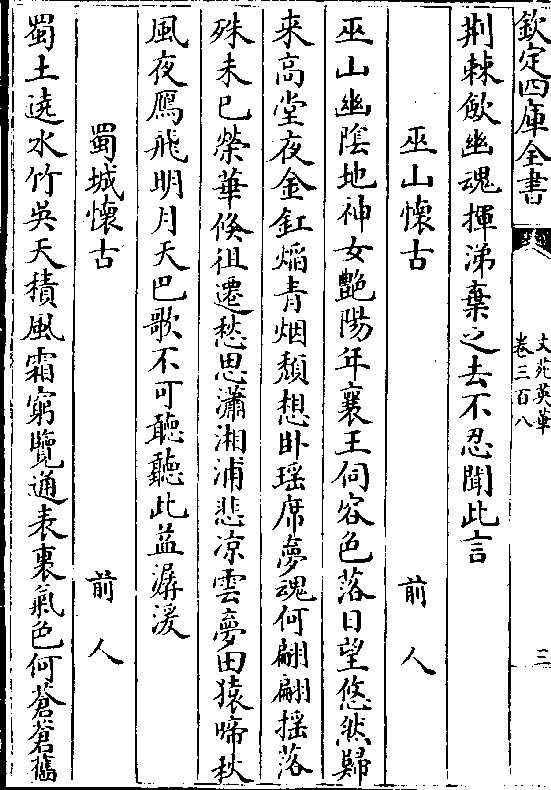 欽定四庫全書
文苑英華
卷三百八
三
荆棘飲幽魂揮涕棄之去不忍聞此言
巫山懷古
前人
巫山幽隂地神女艷陽年襄王伺容色落日望悠然歸
来高堂夜金釭焰青烟頽想卧瑶席夢魂何翩翩揺落
殊未已榮華倐徂遷愁思瀟湘浦悲凉雲夢田猿啼秋
風夜鴈飛明月天巴歌不可聽聽此益潺湲
蜀城懷古
前人
蜀土遶水竹吳天積風霜窮覽通表裏氣色何蒼蒼舊